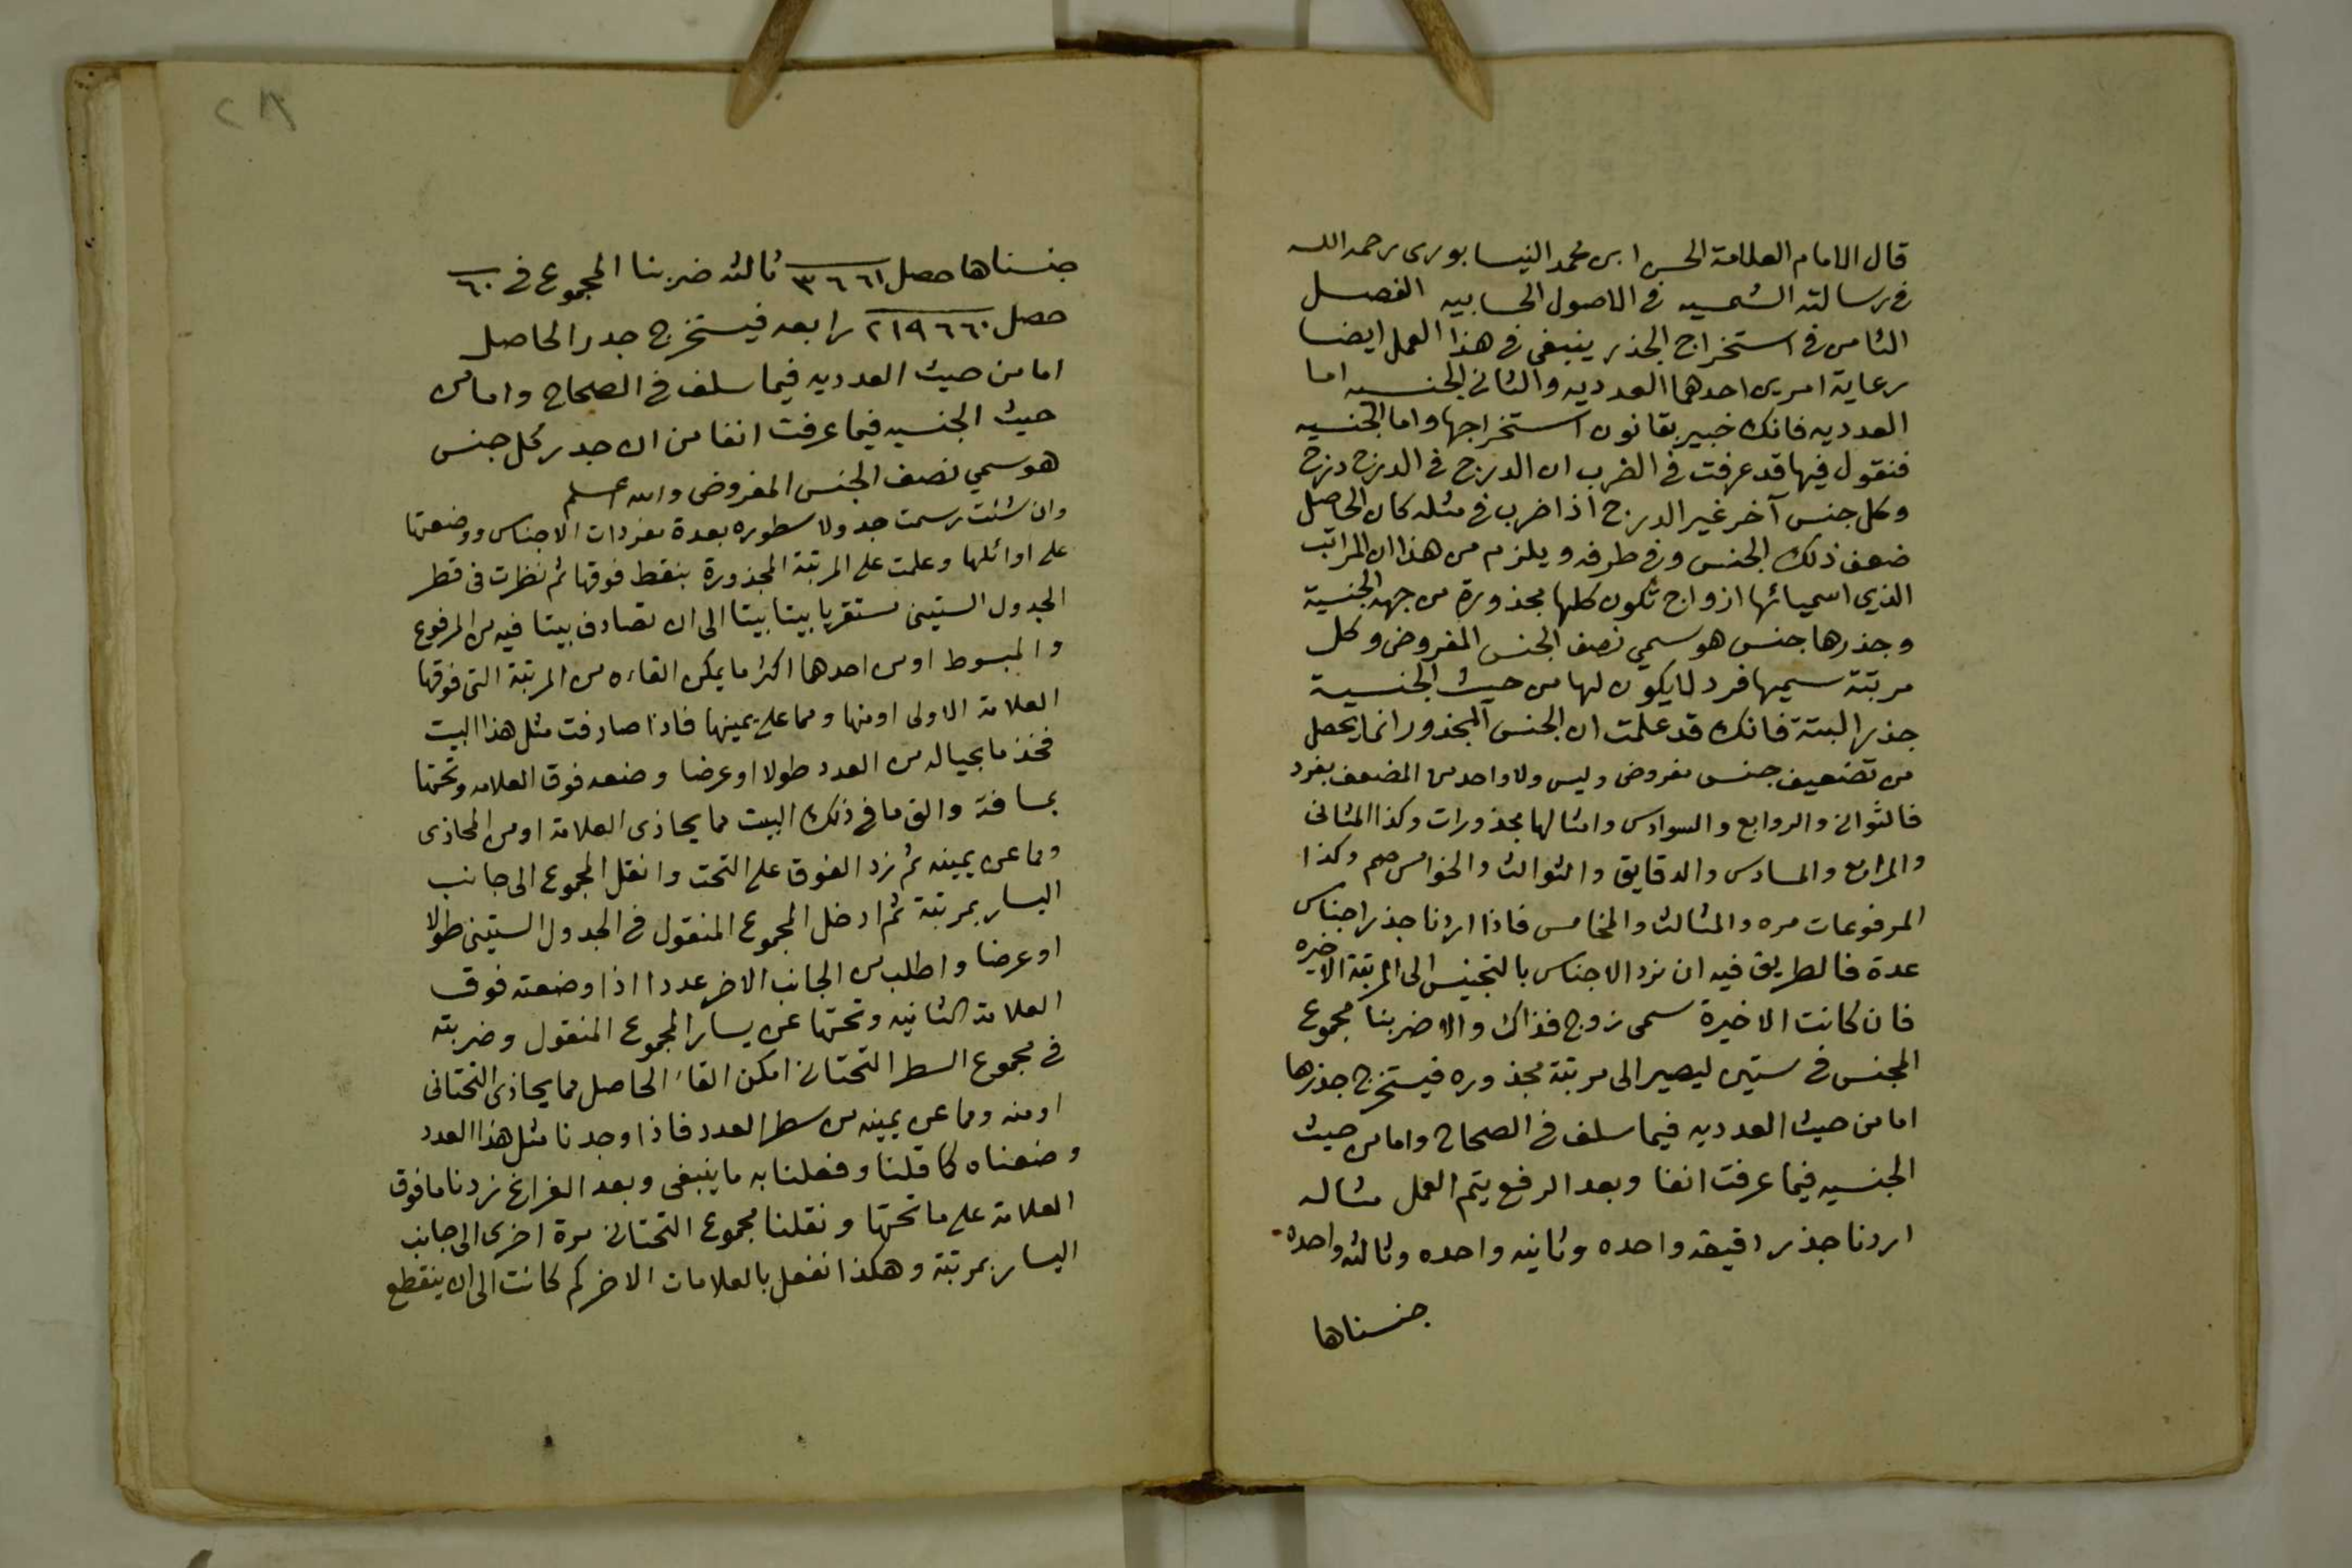 قال الامام العلامة الحسن ابن محمد النيسابورى رحمه الله
فى رسالته الشمسيه فى الاصول الحسابيه الفصل
الثامن فى استخراج الجذر ينبغى فى هذا العمل ايضا
رعاية امرين احدهما العدديه والثانى الجنسيه اما
العدديه فانك خبير بقانون استخراجها واما الجنسيه
فنقول فيها قد عرفت فى الضرب ان الدرج فى الدرج درج
وكل جنس آخر غير الدرج اذا ضرب فى مثله كان الحاصل
ضعف ذلك الجنس وفى طرفه ويلزم من هذا ان المراتب
الذي اسميائها ازواج تكون كلها مجذورة من جهه الجنسية
وجذرها جنس هو سمي نصف الجنس المفروض وكل
مرتبة سميها فرد لا يكون لها من حيث الجنسية
جذر البتة فانك قد علمت ان الجنس المجذور انما يحصل
من تضعيف جنس مفروض وليس ولا واحد من المضعف بفرد
فالثوانى والروابع والسوادس وامثالها مجذورات وكذا المثانى
والمرابع والمسادس والدقايق والثوالث والخوامس صم وكذا
المرفوعات مره والمثالث والمخامس فاذا اردنا جذر اجناس
عدة فالطريق فيه ان نرد الاجناس بالتجنيس الى المرتبة الاخيره
فان كانت الاخيرة سمى زوج فذاك والا ضربنا مجموع
المجنس فى ستين ليصير الى مرتبة مجذوره فيستخرج جذرها
اما من حيث العدديه فيما سلف فى الصحاح واما من حيث
الجنسيه فيما عرفت انفا وبعد الرفع يتم العمل مثاله
اردنا جذر دقيقه واحده وثانيه واحده وثالثه واحده
جنسناها
٢٨
جنسناها حصل ٣٦٦١ ثالثه ضربنا المجموع فى ٦٠
حصل ٢١٩٦٦٠ رابعه فيستخرج جدر الحاصل
اما من حيث العدديه فيما سلف فى الصحاح واما من
حيث الجنسيه فيما عرفت انفا من ان جدر كل جنس
هو سمي نصف الجنس المفروض والله اعلم
وان شئت رسمت جدولا سطوره بعدة مفردات الاجناس ووضعتها
على اوائلها وعلمت على المرتبة المجذورة بنقط فوقها ثم نظرت فى قطر
الجدول الستينى مستقريا بيتا بيتا الى ان تصادف بيتا فيه من المرفوع
والمبسوط او من احدها اكثر ما يمكن القاءه من المرتبة التى فوقها
العلامة الاولى او منها ومما على يمينها فاذا صادفت مثل هذا البيت
فخذ ما بحياله من العدد طولا او عرضا وضعه فوق العلامه وتحتها
بمسافة والق ما فى ذلك البيت مما يحاذى العلامة او من المحاذى
ومما عن يمينه ثم زد الفوق على التحت وانقل المجموع الى جانب
اليسار بمرتبة ثم ادخل المجموع المنقول فى الجدول الستينى طولا
او عرضا واطلب من الجانب الاخر عددا اذا وضعته فوق
العلامة الثانيه وتحتها عن يسار المجموع المنقول وضربته
فى مجموع السطر التحتانى امكن القاء الحاصل مما يحاذى التحتانى
او منه ومما عن يمينه من سطر العدد فاذا وجدنا مثل هذا العدد
وضعناه كما قلنا وفعلنا به ما ينبغى وبعد الفراغ زدنا ما فوق
العلامة على ما تحتها ونقلنا مجموع التحتانى مرة اخرى الى جانب
اليسار بمرتبة وهكذا نفعل بالعلامات الاخر كم كانت الى ان ينقطع